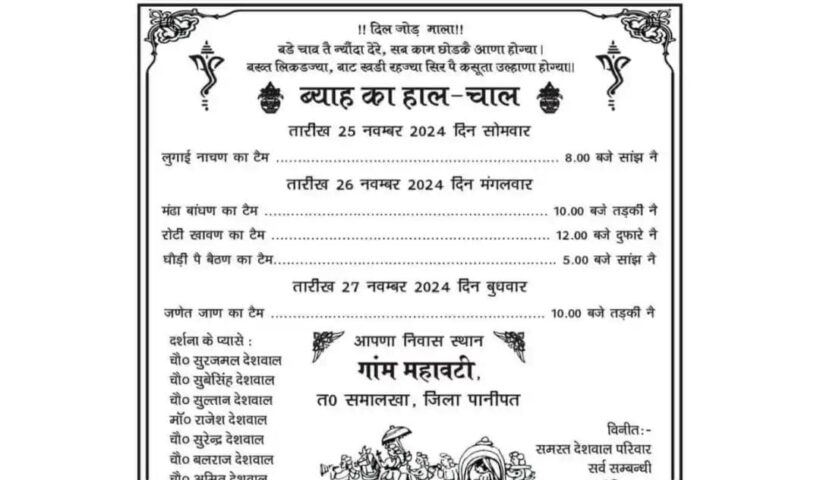 !! दिल जोड़ माला!!
बडे चाव तै न्यौंदा देरे, सब काम छोडकै आणा होग्या।
बख्त लिकडज्या, बाट खडी रहज्या सिर पै कसूता उल्हाणा होग्या॥
ब्याह का हाल-चाल
तारीख 25 नवम्बर 2024 दिन सोमवार
लुगाई नाचण का टैम ........ 8.00 बजे सांझ नै
तारीख 26 नवम्बर 2024 दिन मंगलवार
मंढा बांधण का टैम ........ 10.00 बजे तड़की नै
रोटी खावण का टैम ........ 12.00 बजे दुफारे नै
घौड़ी पै बैठण का टैम........ 5.00 बजे सांझ नै
तारीख 27 नवम्बर 2024 दिन बुधवार
जणेत जाण का टैम ........ 10.00 बजे तड़की नै
दर्शना के प्यासे :
चौ० सुरजमल देशवाल
चौ० सुबेसिंह देशवाल
चौ० सुल्तान देशवाल
मॉ० राजेश देशवाल
चौ० सुरेन्द्र देशवाल
चौ० बलराज देशवाल
चौ० अमित देशवाल
आपणा निवास स्थान
गांम महावटी,
त0 समालखा, जिला पानीपत
विनीत:-
समस्त देशवाल परिवार
सर्व सम्बन्धी